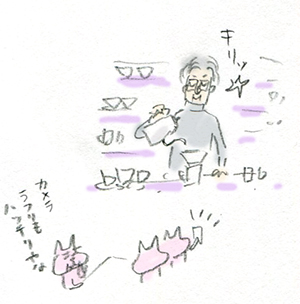 キリッ
カメラ
ウツリも
バッチリやな